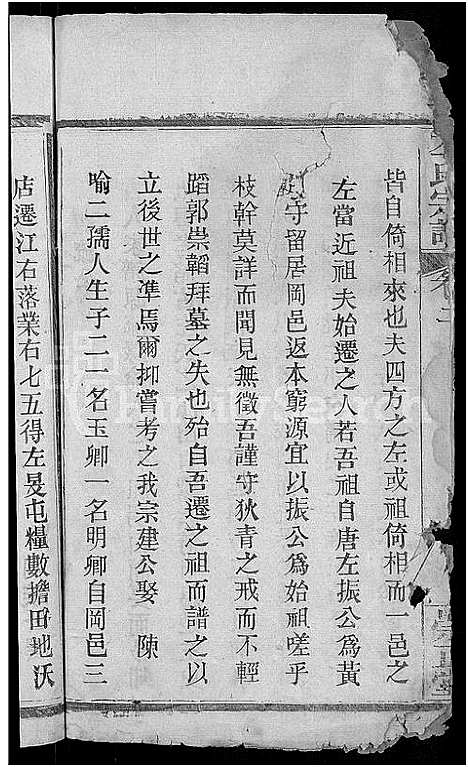 氏宗譜
卷二
皆自倚相來也夫四方之左或祖倚相而一邑之
左當近祖夫始遷之人若吾祖自唐左振公爲黃
守留居岡邑返本窮源宜以振公爲始祖嗟乎
枝幹莫詳而聞見無徵吾謹守狄青之戒而不輕
蹈郭崇韜拜墓之失也殆自吾遷之祖而譜之以
立後世之準焉爾抑嘗考之我宗建公娶 陳
喻二孺人生子二一名玉卿一名明卿自岡邑三
店遷江右落業右七五得左旻屯糧數擔田地沃
FamilySearch